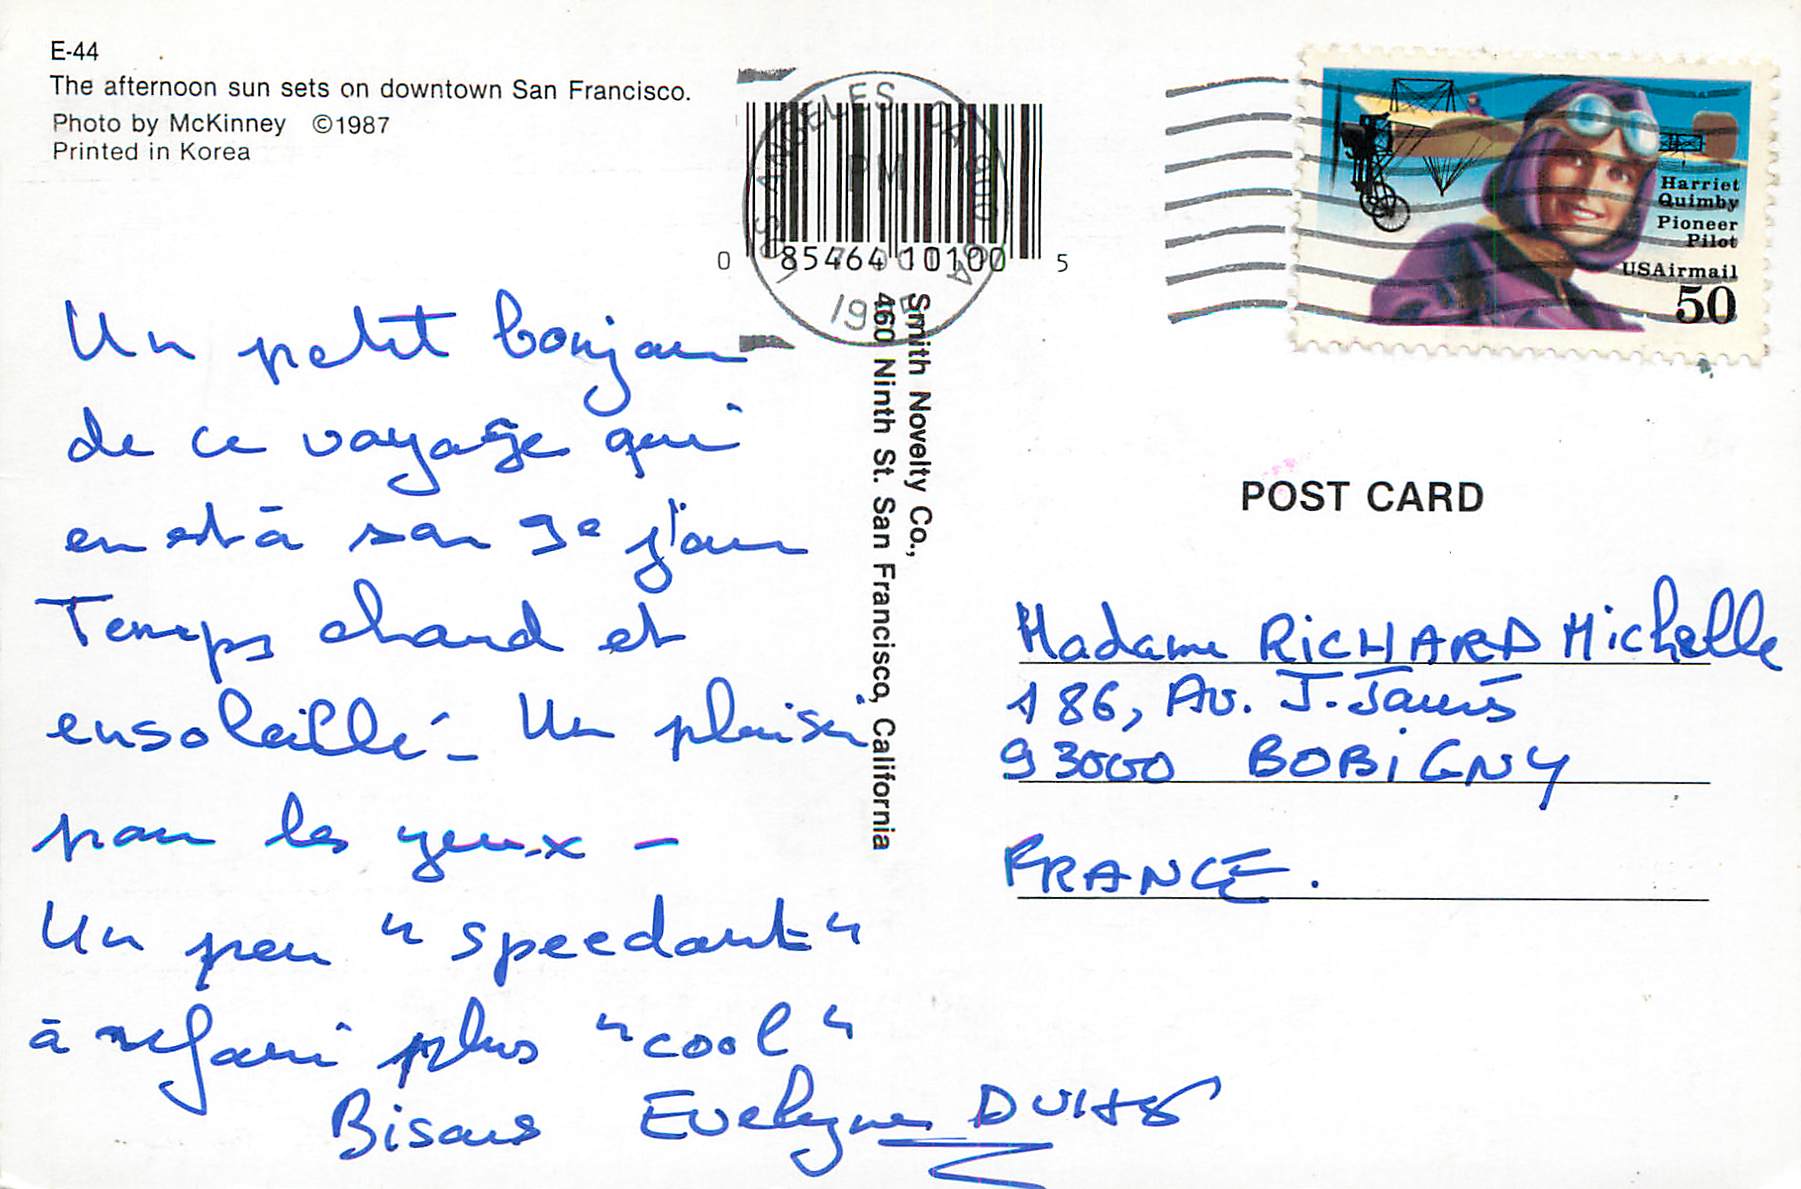 E-44
The afternoon sun sets on downtown San Francisco.
Photo by McKinney ©1987
Printed in Korea
LOS ANGELES CA 900
PM
19
0 85464 10100 5
Smith Novelty Co.,
460 Ninth St. San Francisco, California
Harriet
Quimby
Pioneer
Pilot
USAirmail
50
Un petit bonjour
de ce voyage qui
en est à son 9e jour
Temps chaud et
ensoleillé - Un plaisir
pour les yeux -
Un peu "speedant"
à refaire plus "cool"
Bisous Evelyne
POST CARD
Madame RICHARD Michelle
186, Av. J. Jaurès
93000 BOBIGNY
FRANCE.